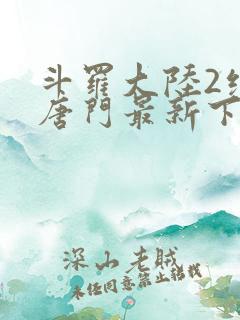 斗羅大陸2絕
唐門最新下
深山老賊
未經同意禁止轉載